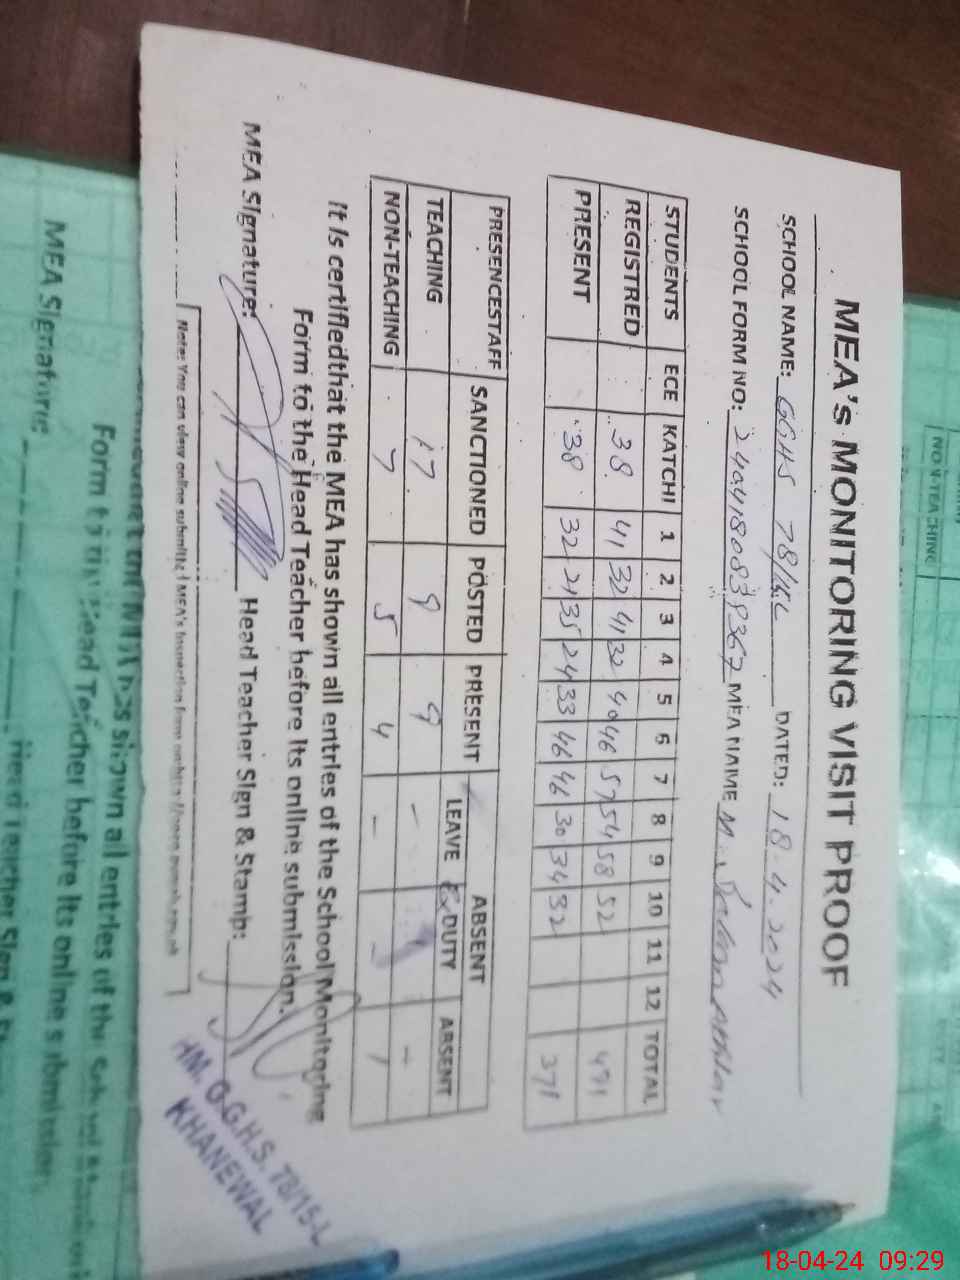 MEA's MONITORING VISIT PROOF
SCHOOL NAME: GGHS 78/15L DATED: 18-4-2024
SCHOOL FORM NO: MEA NAME M.
STUDENTS ECE KATCHI 1 2 3 4 5 6 7 8 9 10 11 12 TOTAL
REGISTRED 38 41 32 41 32 40 46 57 54 58 52 491
PRESENT 38 32 21 35 24 33 46 46 30 34 32 371
PRESENCESTAFF SANCTIONED POSTED PRESENT ABSENT
LEAVE DUTY ABSENT
TEACHING 17 9 9 - -
NON-TEACHING 7 5 4 - - 1
It is certifiedthat the MEA has shown all entries of the School Monitoring
Form to the Head Teacher before its online submission.
MEA Signature: Head Teacher Sign & Stamp:
HM. G.G.H.S. 78/15-L
KHANEWAL
Note: You can view online submitted MEA's Inspection form
NON-TEACHING
has shown all entries of the
Form to the Head Teacher before its online submission.
MEA Signature
Head Teacher Sign &
18-04-24 09:29